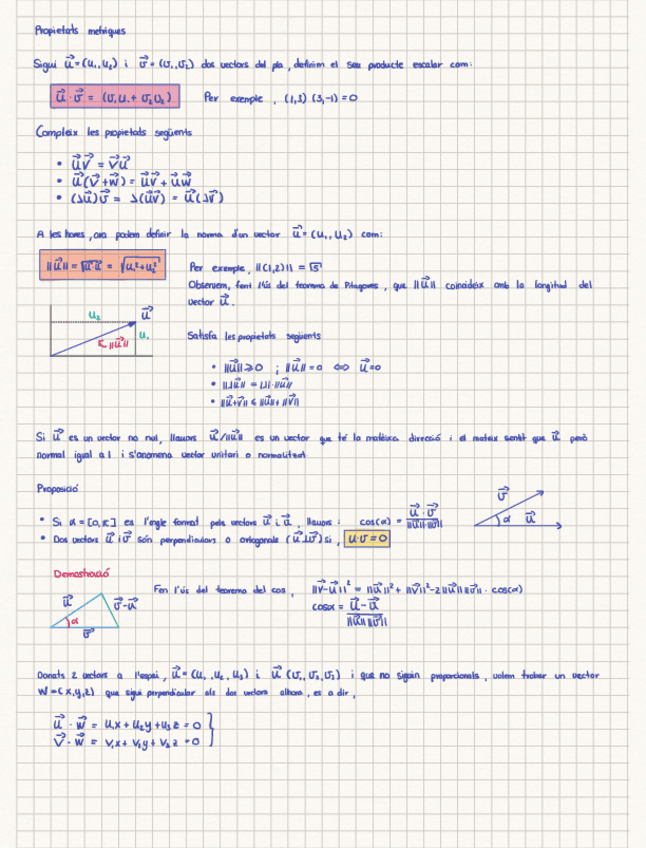 Propietats mètriques
Sigui u⃗=(u₁,u₂) i v⃗=(v₁,v₂) dos vectors del pla, definim el seu producte escalar com:
u⃗·v⃗ = (v₁u₁+v₂u₂) Per exemple, (1,3) (3,-1)=0
Compleix les propietats següents
• u⃗v⃗ = v⃗u⃗
• u⃗(v⃗+w⃗) = u⃗v⃗ + u⃗w⃗
• (λu⃗)v⃗ = λ(u⃗v⃗) = u⃗(λv⃗)
A les hores, ara podem definir la norma d'un vector u⃗=(u₁,u₂) com:
||u⃗|| = √u⃗·u⃗ = √u₁²+u₂² Per exemple, ||(1,2)|| = √5
Observem, fent l'ús del teorema de Pitagores, que ||u⃗|| coincideix amb la longitud del
vector u⃗.
u₂ u⃗
u₁
||u⃗||
Satisfà les propietats següents
• ||u⃗||≥0 ; ||u⃗||=0 ⇔ u⃗=0
• ||λu⃗|| = |λ|·||u⃗||
• ||u⃗+v⃗|| ≤ ||u⃗||+||v⃗||
Si u⃗ es un vector no nul, llauors u⃗/||u⃗|| es un vector que té la mateixa direcció i el mateix sentit que u⃗ però
normal igual a 1 i s'anomena vector unitari o normalitzat
Proposició
• Si α=[0,π] es l'angle format pels vectors u⃗ i u⃗, llauors: cos(α) = u⃗·v⃗ / ||u⃗||·||v⃗||
• Dos vectors u⃗ i v⃗ són perpendiculars o ortogonals (u⃗⊥v⃗) si, u·v=0
v⃗
α u⃗
Demostració
Fen l'ús del teorema del cos, ||v⃗-u⃗||² = ||u⃗||²+||v⃗||²-2||u⃗||||v⃗||·cos(α)
cosα = u⃗-u⃗ / ||u⃗||||v⃗||
u⃗ v⃗-u⃗
α
v⃗
Donats 2 vectors a l'espai, u⃗=(u₁,u₂,u₃) i u⃗ (v₁,v₂,v₃) i que no siguin proporcionals, volem trobar un vector
w=(x,y,z) que sigui perpendicular als dos vectors alhora, es a dir,
u⃗·w⃗ = u₁x+u₂y+u₃z=0 }
v⃗·w⃗ = v₁x+v₂y+v₃z=0